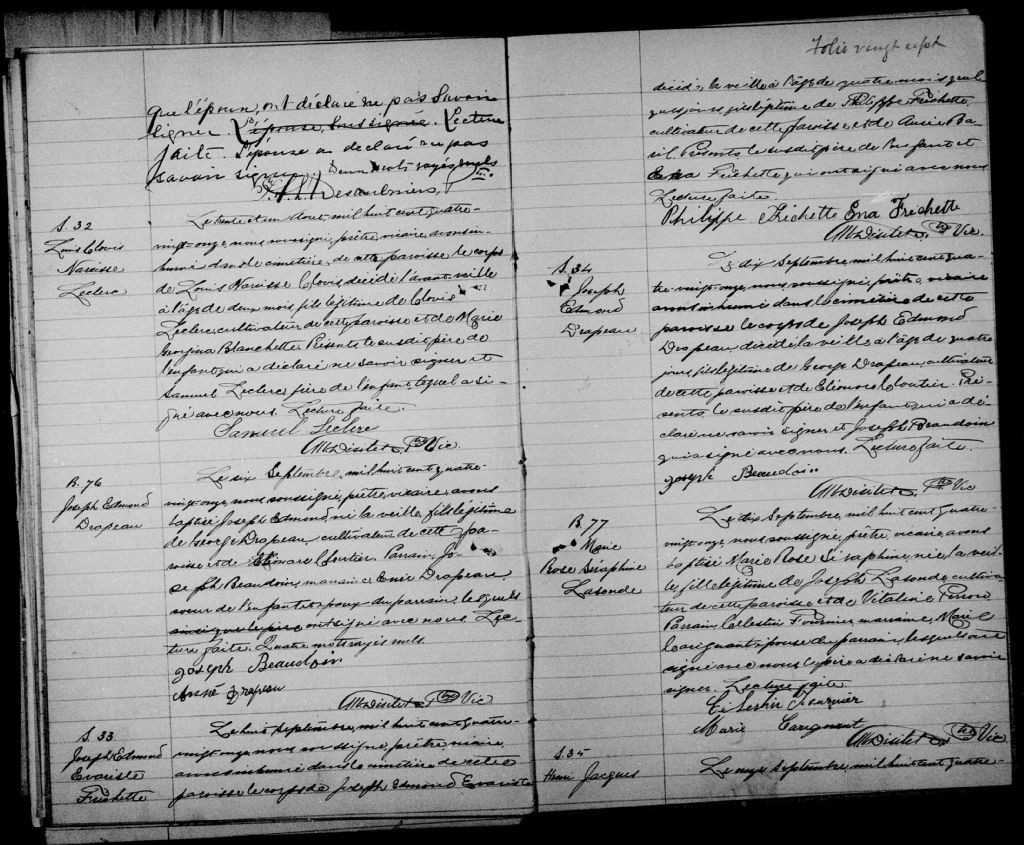 que l'époux, ont déclaré ne pas savoir
signer. L'épouse, soussignée. Lecture
faite. L'épouse a declaré ne pas
savoir signer. Deux mots rayés nuls
Desaulniers,
S. 32
Louis Clovis
Narcisse
Leclerc
Le trente et un Aout, mil huit cent quatre-
vingt-onze, nous soussigné, prêtre, vicaire, avons in-
humé dans le cimetière, de cette paroisse le corps
de Louis Narcisse Clovis, décédé l'avant-veille
à l'âge de deux mois, fils légitime de Clovis
Leclerc, cultivateur de cette paroisse et de Marie
Georgina Blanchette. Présents le susdit père de
l'enfant qui a déclaré ne savoir signer et
Samuel Leclerc, frère de l'enfant, lequel a si-
gné avec nous. Lecture faite.
Samuel Leclerc
Ptre Vic
B. 76
Joseph Edmond
Drapeau
Le six Septembre, mil huit cent quatre-
vingt-onze, nous soussigné, prêtre, vicaire, avons
baptisé Joseph Edmond né la veille, fils légitime
de George Drapeau cultivateur de cette pa-
roisse et de Cloutier. Parrain, Jo-
seph Beaudoin, marraine Drapeau
soeur de l'enfant époux du parrain, lesquels
ainsi que le père ont signé avec nous. Lec-
ture faite. Quatre mots rayés nuls.
Joseph Beaudoin
Drapeau
Ptre Vic
S. 33
Joseph Edmond
Evariste
Frichette
Le huit Septembre, mil huit cent quatre-
vingt-onze, nous soussigné, prêtre, vicaire,
avons inhumé dans le cimetière de cette
paroisse le corps de Joseph Edmond Evariste
Folio vingt sept
décédé la veille à l'âge de quatre mois quel-
ques jours, fils légitime de Philippe Frichette,
cultivateur de cette paroisse et de
Présents le susdit père de l'enfant et
Frichette qui ont signé avec nous
Lecture faite.
Philippe Frichette Ena Frichette
Ptre Vic.
S. 34
Joseph
Edmond
Drapeau
Le dix Septembre, mil huit cent qua-
tre-vingt-onze, nous, soussigné, prêtre, vicaire
avons inhumé dans le cimetière de cette
paroisse le corps de Joseph Edmond
Drapeau, décédé la veille à l'âge de quatre
jours, fils légitime de George Drapeau, cultivateur
de cette paroisse et de Cloutier. Pré-
sents, le susdit père de l'enfant qui a dé-
claré ne savoir signer et Joseph Beaudoin
qui a signé avec nous. Lecture faite.
Joseph Beaudoin
Ptre Vic
B. 77
Marie
Rose Séraphine
Lasonde
Le dix Septembre, mil huit cent quatre-
vingt-onze, nous, soussigné, prêtre, vicaire, avons
baptisé Marie Rose Séraphine née la veil-
le, fille légitime de Joseph Lasonde cultiva-
teur de cette paroisse et de Vitaline
Parrain, Célestin Fournier, marraine, Marie
Carignant épouse du parrain, lesquels ont
signé avec nous, le père a déclaré ne savoir
signer. Lecture faite
Célestin Fournier
Marie Carignant
Ptre Vic
S. 35
Henri Jacques
Le onze Septembre, mil huit cent quatre-